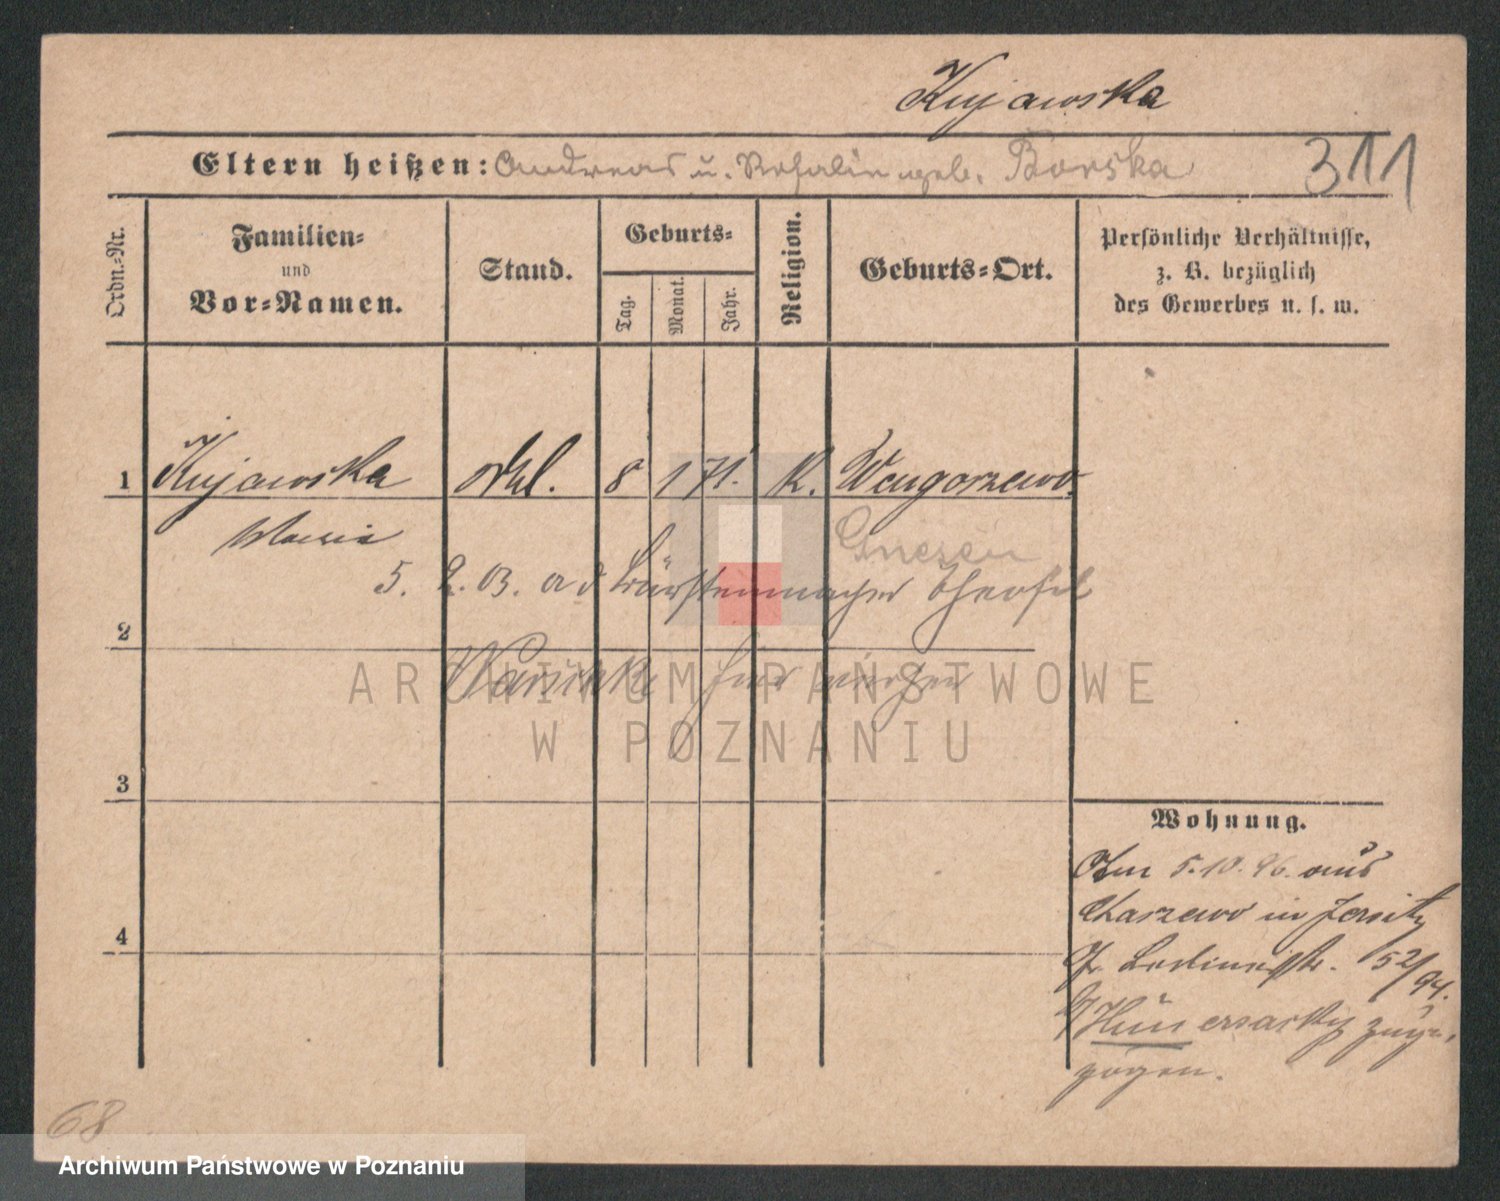 Kujawska
Eltern heißen: Andreas u. Rosalie geb. Borska
311
Ordn.-Nr.
Familien-
und
Vor-Namen.
Stand.
Geburts-
Tag.
Monat.
Jahr.
Religion.
Geburts-Ort.
Persönliche Verhältnisse,
z. B. bezüglich
des Gewerbes u. s. w.
1 Kujawska 8 1 71. K. Wengorzewo
Maria
Gnesen
5. 2. 03. a d Bürstenmacher
2
3
4
ARCHIWUM PAŃSTWOWE
W POZNANIU
Wohnung.
Am 5.10.96. aus
in Jersitz
Gr. Berlinerstr. 52/94.
zuge-
zogen.
68
Archiwum Państwowe w Poznaniu